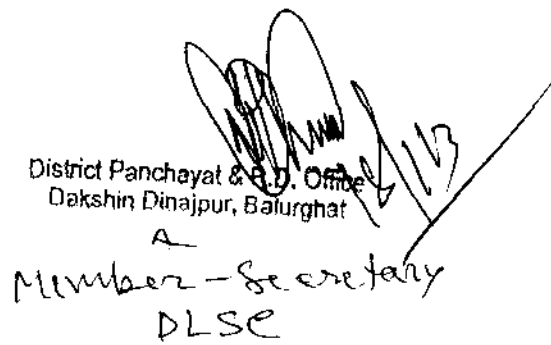 District Panchayat & R.D. Office
Dakshin Dinajpur, Balurghat
Member-Secretary
DLSC